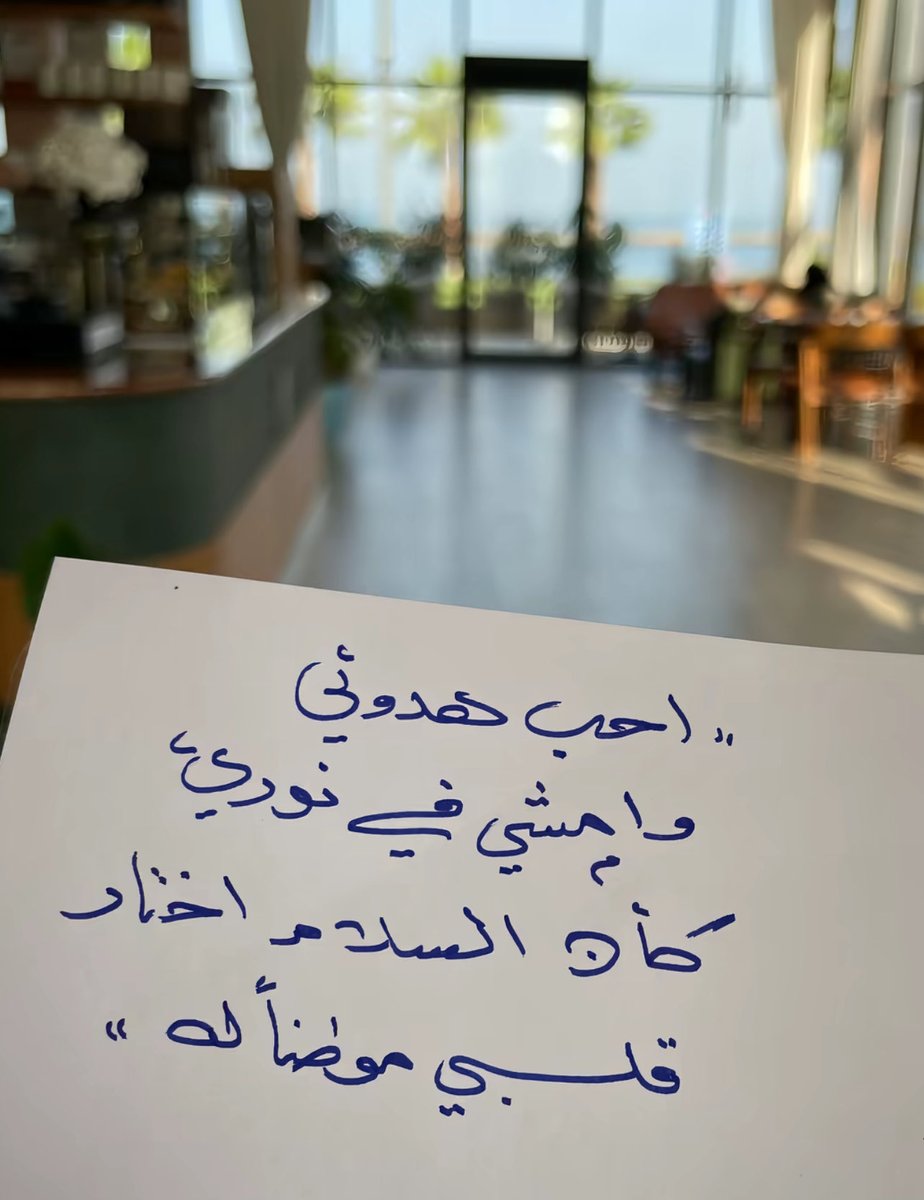 " احب هدوئي
وامشي في نوري،
كأن السلام اختار
قلبي موطنأ له "